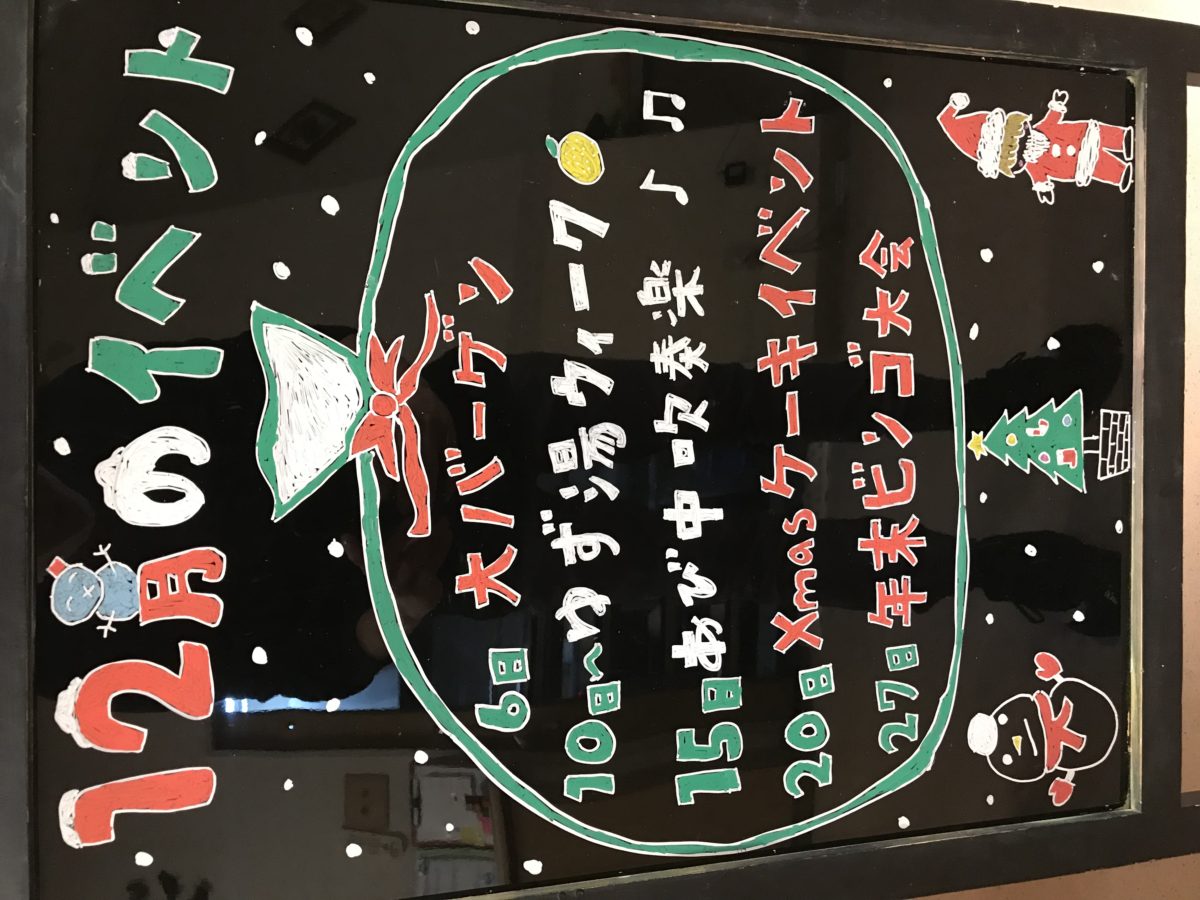 12月のイベント
6日 大バーゲン
10日〜ゆず湯ウィーク
15日 あび中吹奏楽♪♫
20日 Xmasケーキイベント
27日 年末ビンゴ大会